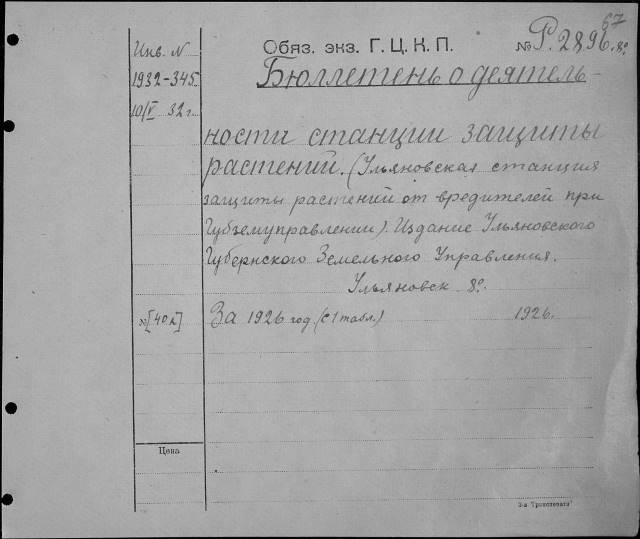 67
Обяз. экз. Г. Ц. К. П. № Р. 2896. 8º.
Инв. N
1932-345
10/V 32 г.
Бюллетень о деятель-
ности станции защиты
растений. (Ульяновская станция
защиты растений от вредителей при
Губземуправлении). Издание Ульяновского
Губернского Земельного Управления.
Ульяновск 8º.
За 1926 год (с 1 табл.) 1926.
Цена